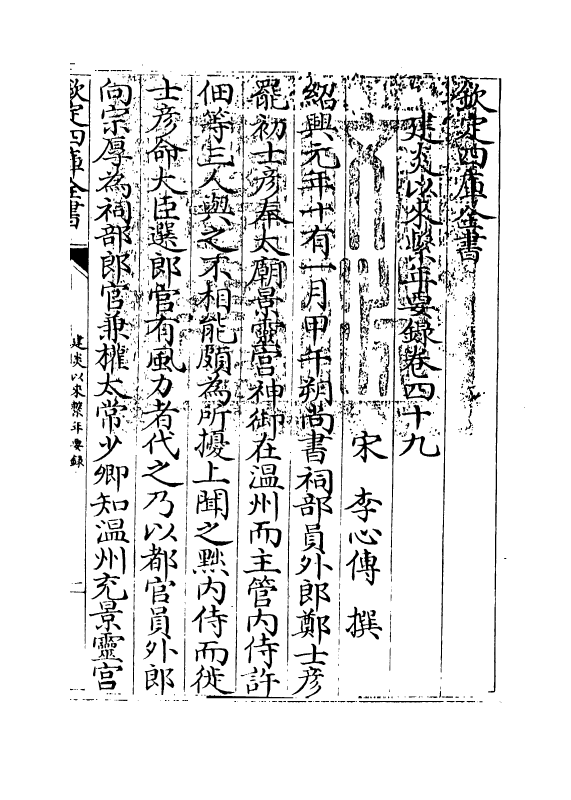 欽定四庫全書
建炎以來繫年要録卷四十九
宋 李心傳 撰
紹興元年十有一月甲午朔尚書祠部員外郎鄭士彦
罷初士彦奉太廟景靈宫神御在温州而主管内侍許
佃等三人與之不相能頗為所擾上聞之黜内侍而徙
士彦命大臣選郎官有風力者代之乃以都官員外郎
向宗厚為祠部郎官兼權太常少卿知温州充景靈宫
欽定四庫全書
建炎以來繫年要録